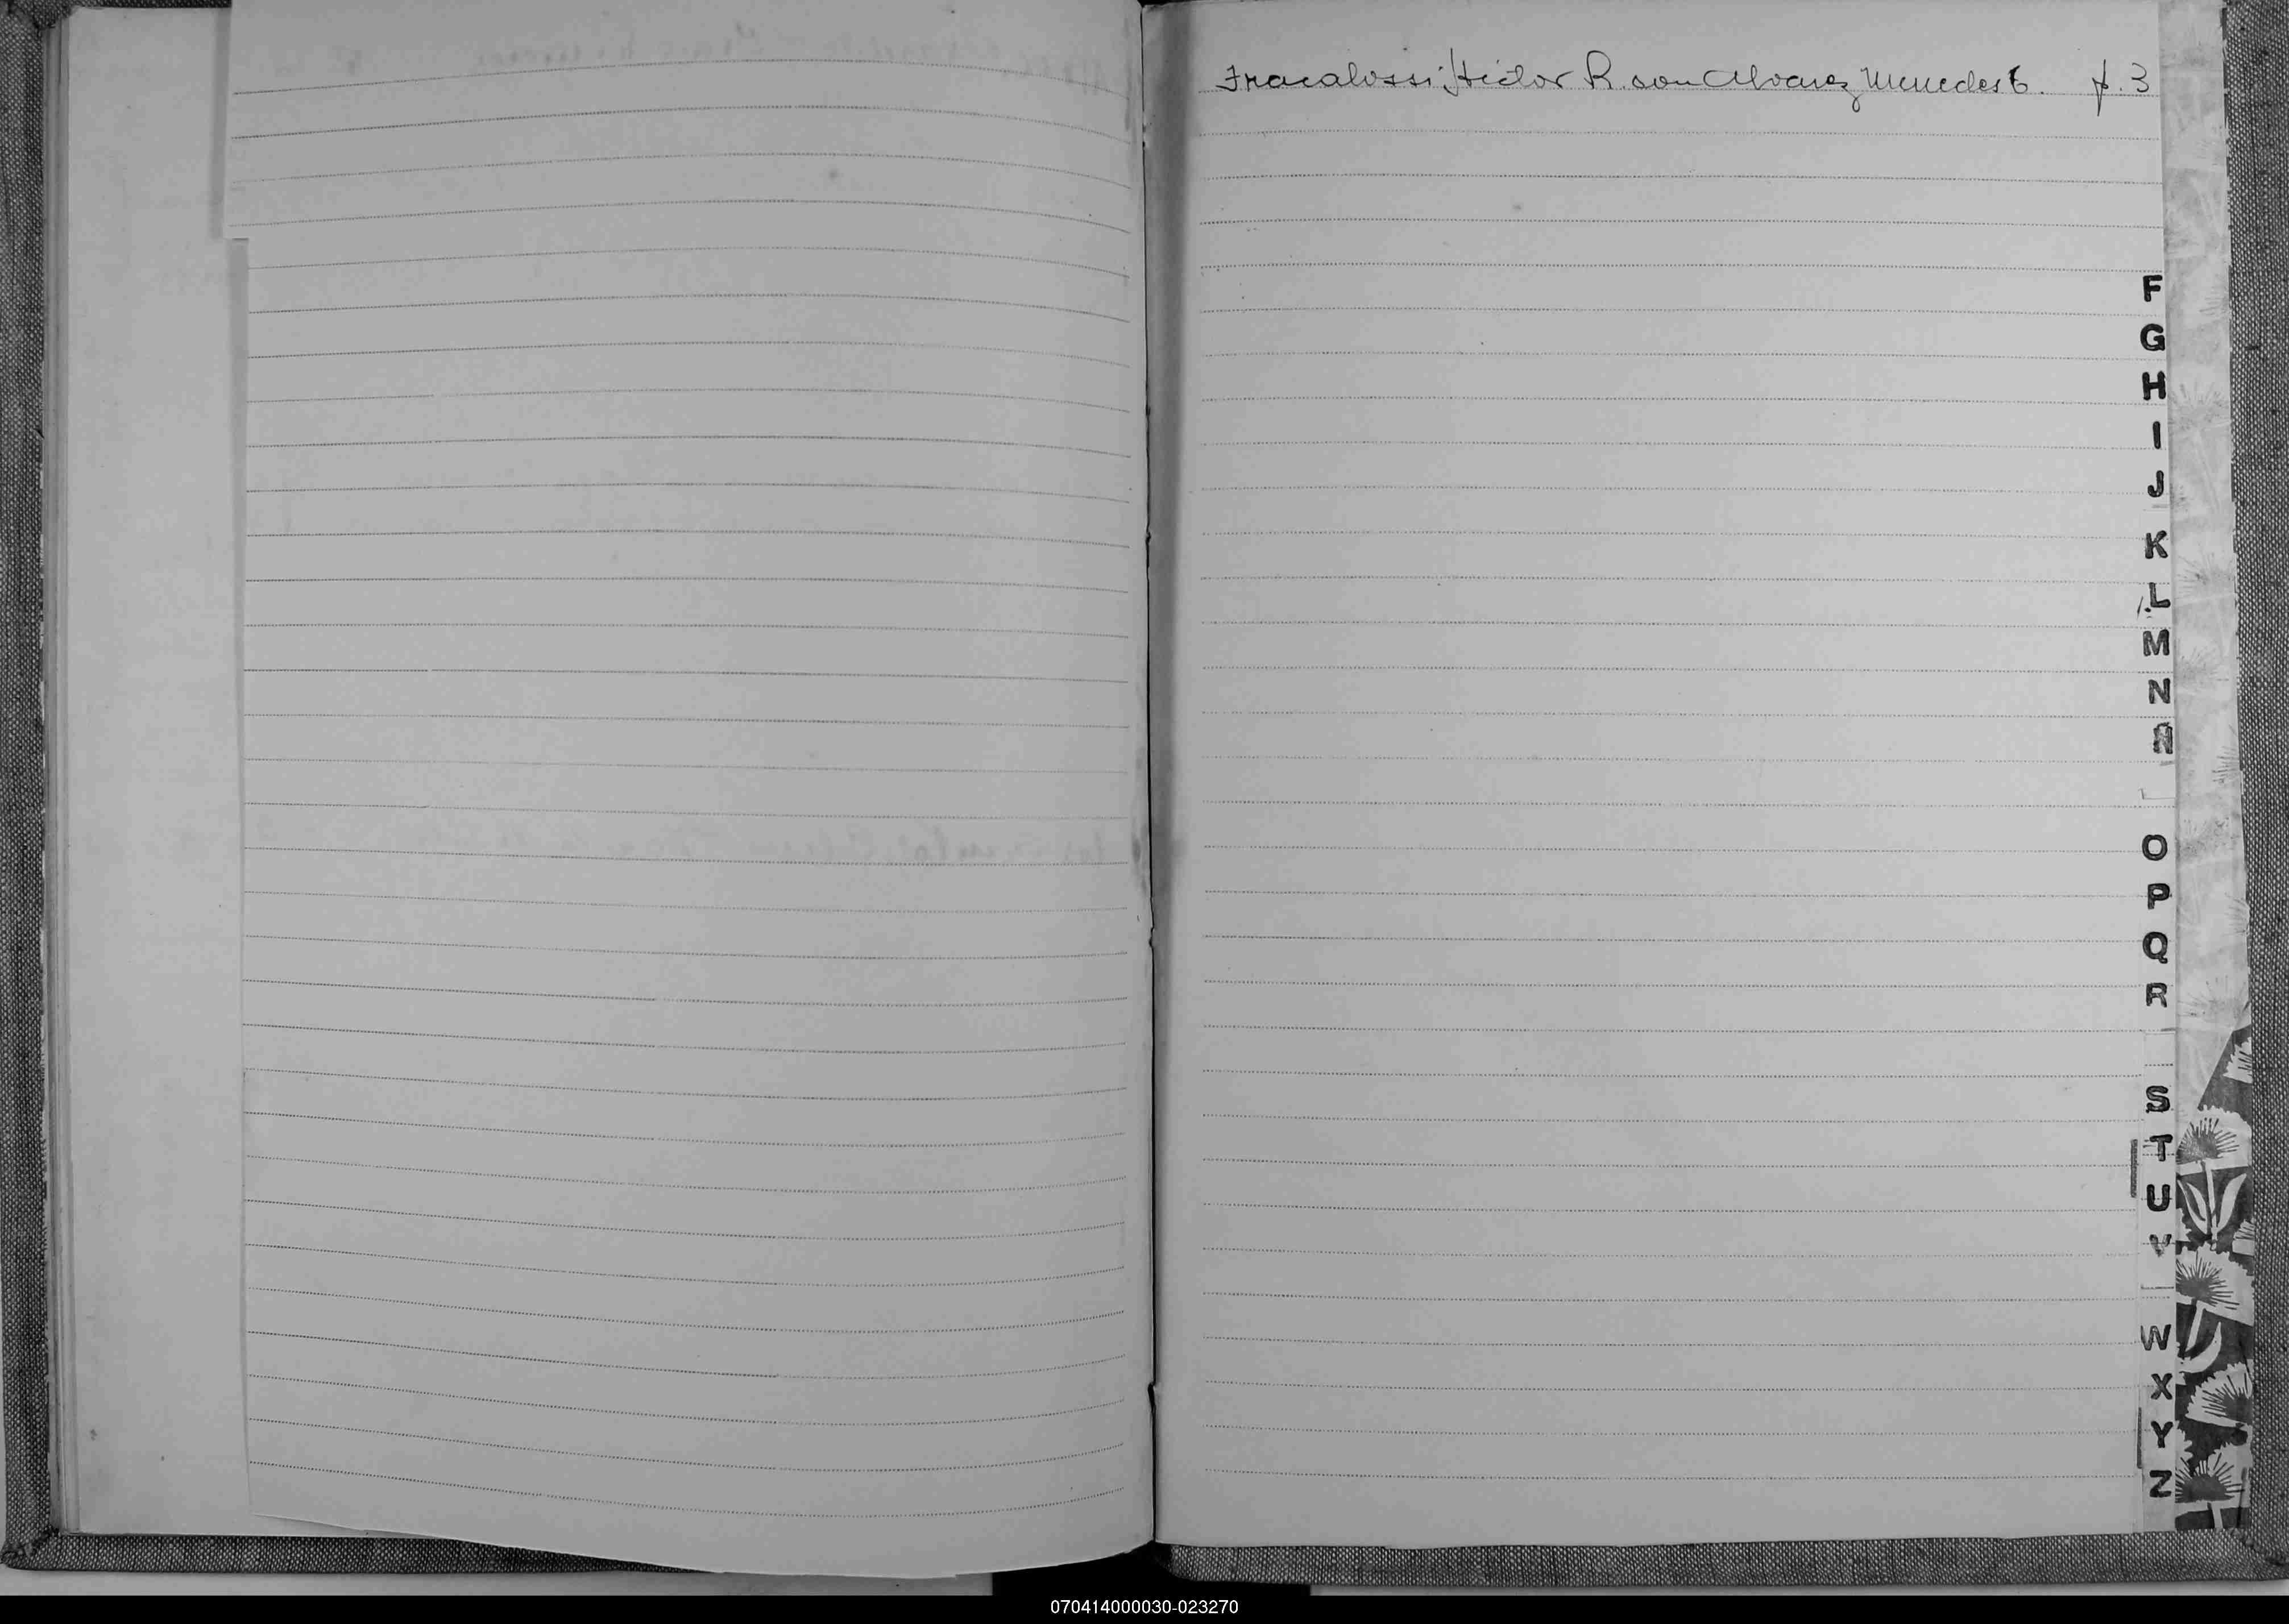 Fracalossi, Héctor R. con Alvarez Mercedes E. f. 3
F
G
H
I
J
K
L
M
N
Ñ
O
P
Q
R
S
T
U
V
W
X
Y
Z
070414000030-023270